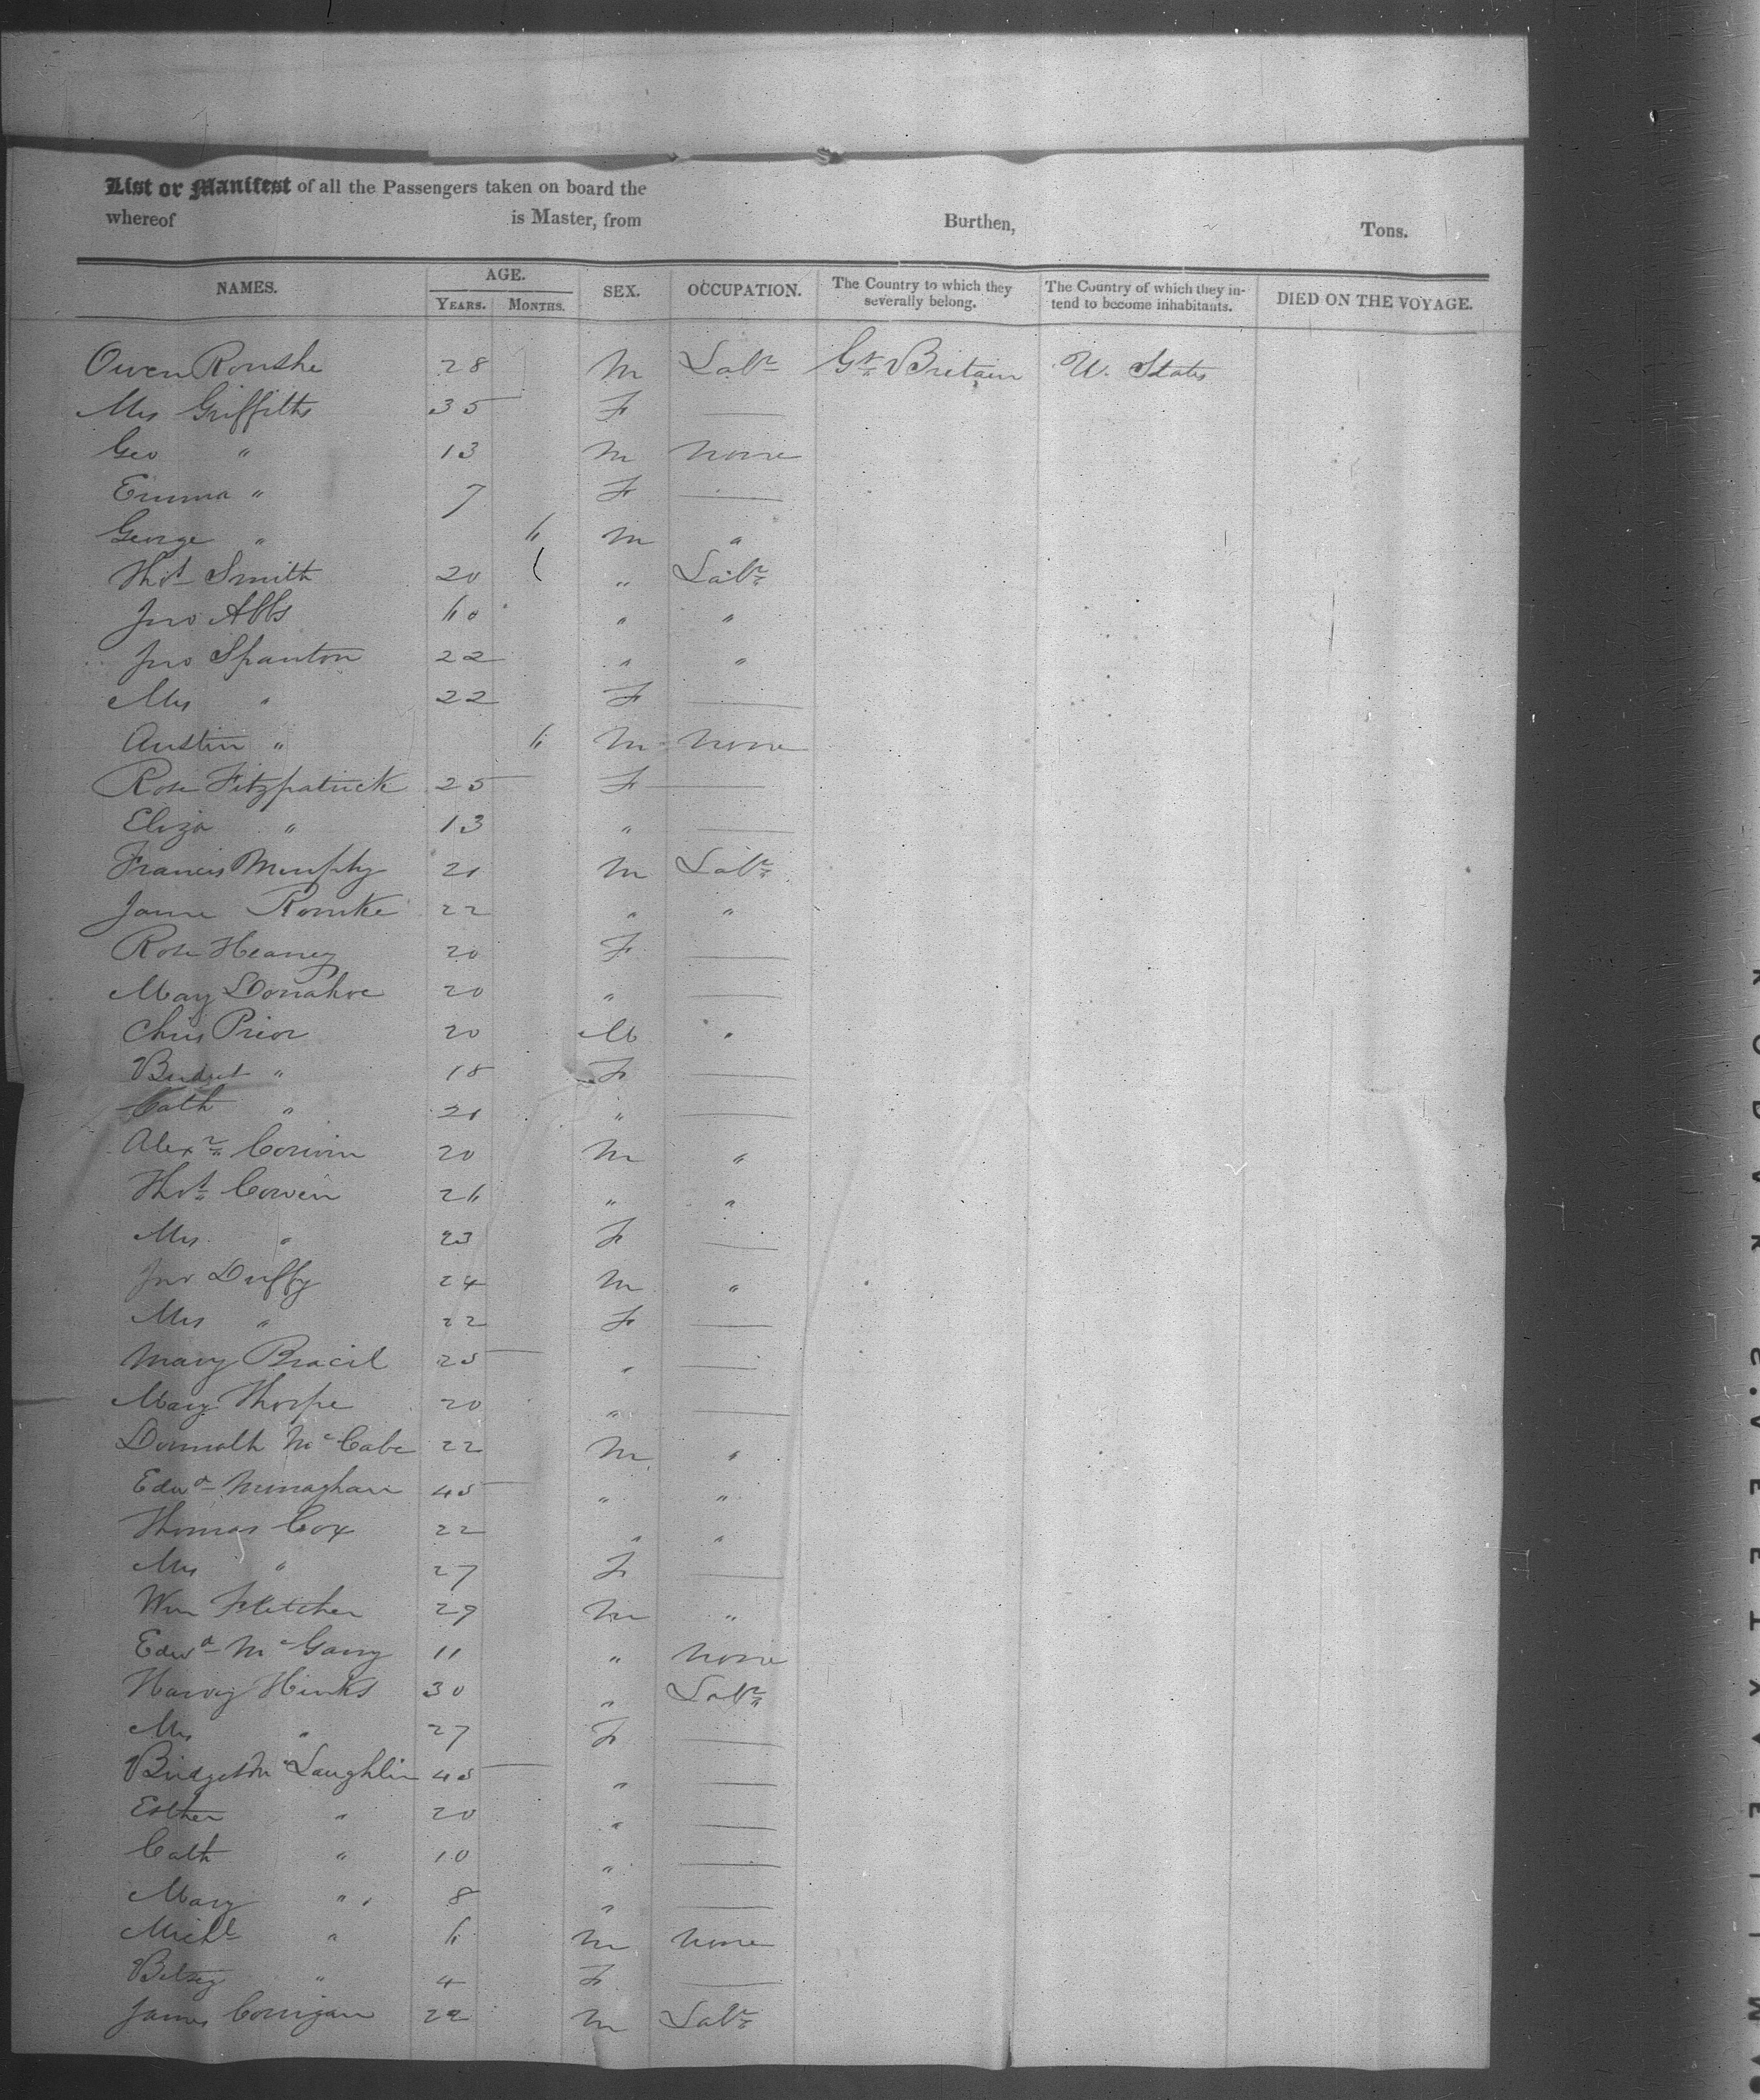 List or Manifest of all the Passengers taken on board the
whereof is Master, from Burthen, Tons.
NAMES. AGE. YEARS. MONTHS. SEX. OCCUPATION. The Country to which they severally belong. The Country of which they intend to become inhabitants. DIED ON THE VOYAGE.
Owen Rourke 28 M Labr Gt Britain U. States
Mrs Griffiths 35 F —
Geo " 13 M None
Emma " 7 F —
George " 6 M "
Thos Smith 20 " Labr
Jno Abbs 60 " "
Jno Spanton 22 " "
Mrs " 22 F —
Austin " 6 M None
Rose Fitzpatrick 25 F —
Eliza " 13 " —
Francis Murphy 21 M Labr
Rourke 22 " "
Rose Heaney 20 F —
Mary Donahoe 20 " —
Chris Prior 20 M "
Bridget " 18 F —
Cath " 21 " —
Alexr 20 M "
Thos Cowen 26 " "
Mrs " 23 F —
Jno Duffy 24 M "
Mrs " 22 F —
Mary Bracil 25 " —
Mary Thorpe 20 " —
McCabe 22 M "
Edwd Monaghan 45 " "
Thomas Cox 22 " "
Mrs " 27 F —
Wm Fletcher 29 M "
Edwd McGarry 11 " None
Harvey Hinks 30 " Labr
Mrs " 27 F —
Bridget McLaughlin 45 " —
Esther " 20 " —
Cath " 10 " —
Mary " 8 " —
Michl " 6 M None
Betsey " 4 F —
James Corrigan 22 M Labr